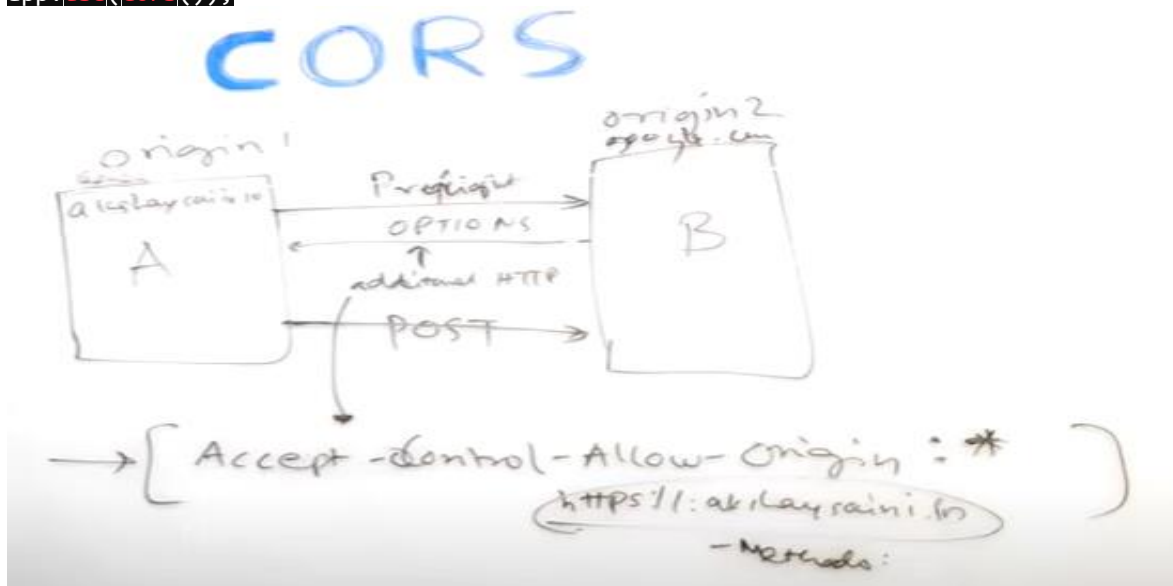 CORS
origin 1
akshaysaini.in
A
origin 2
google.com
B
Preflight
OPTIONS
additional HTTP
POST
Accept-Control-Allow-Origin : *
https://:akshaysaini.in
- Methods: